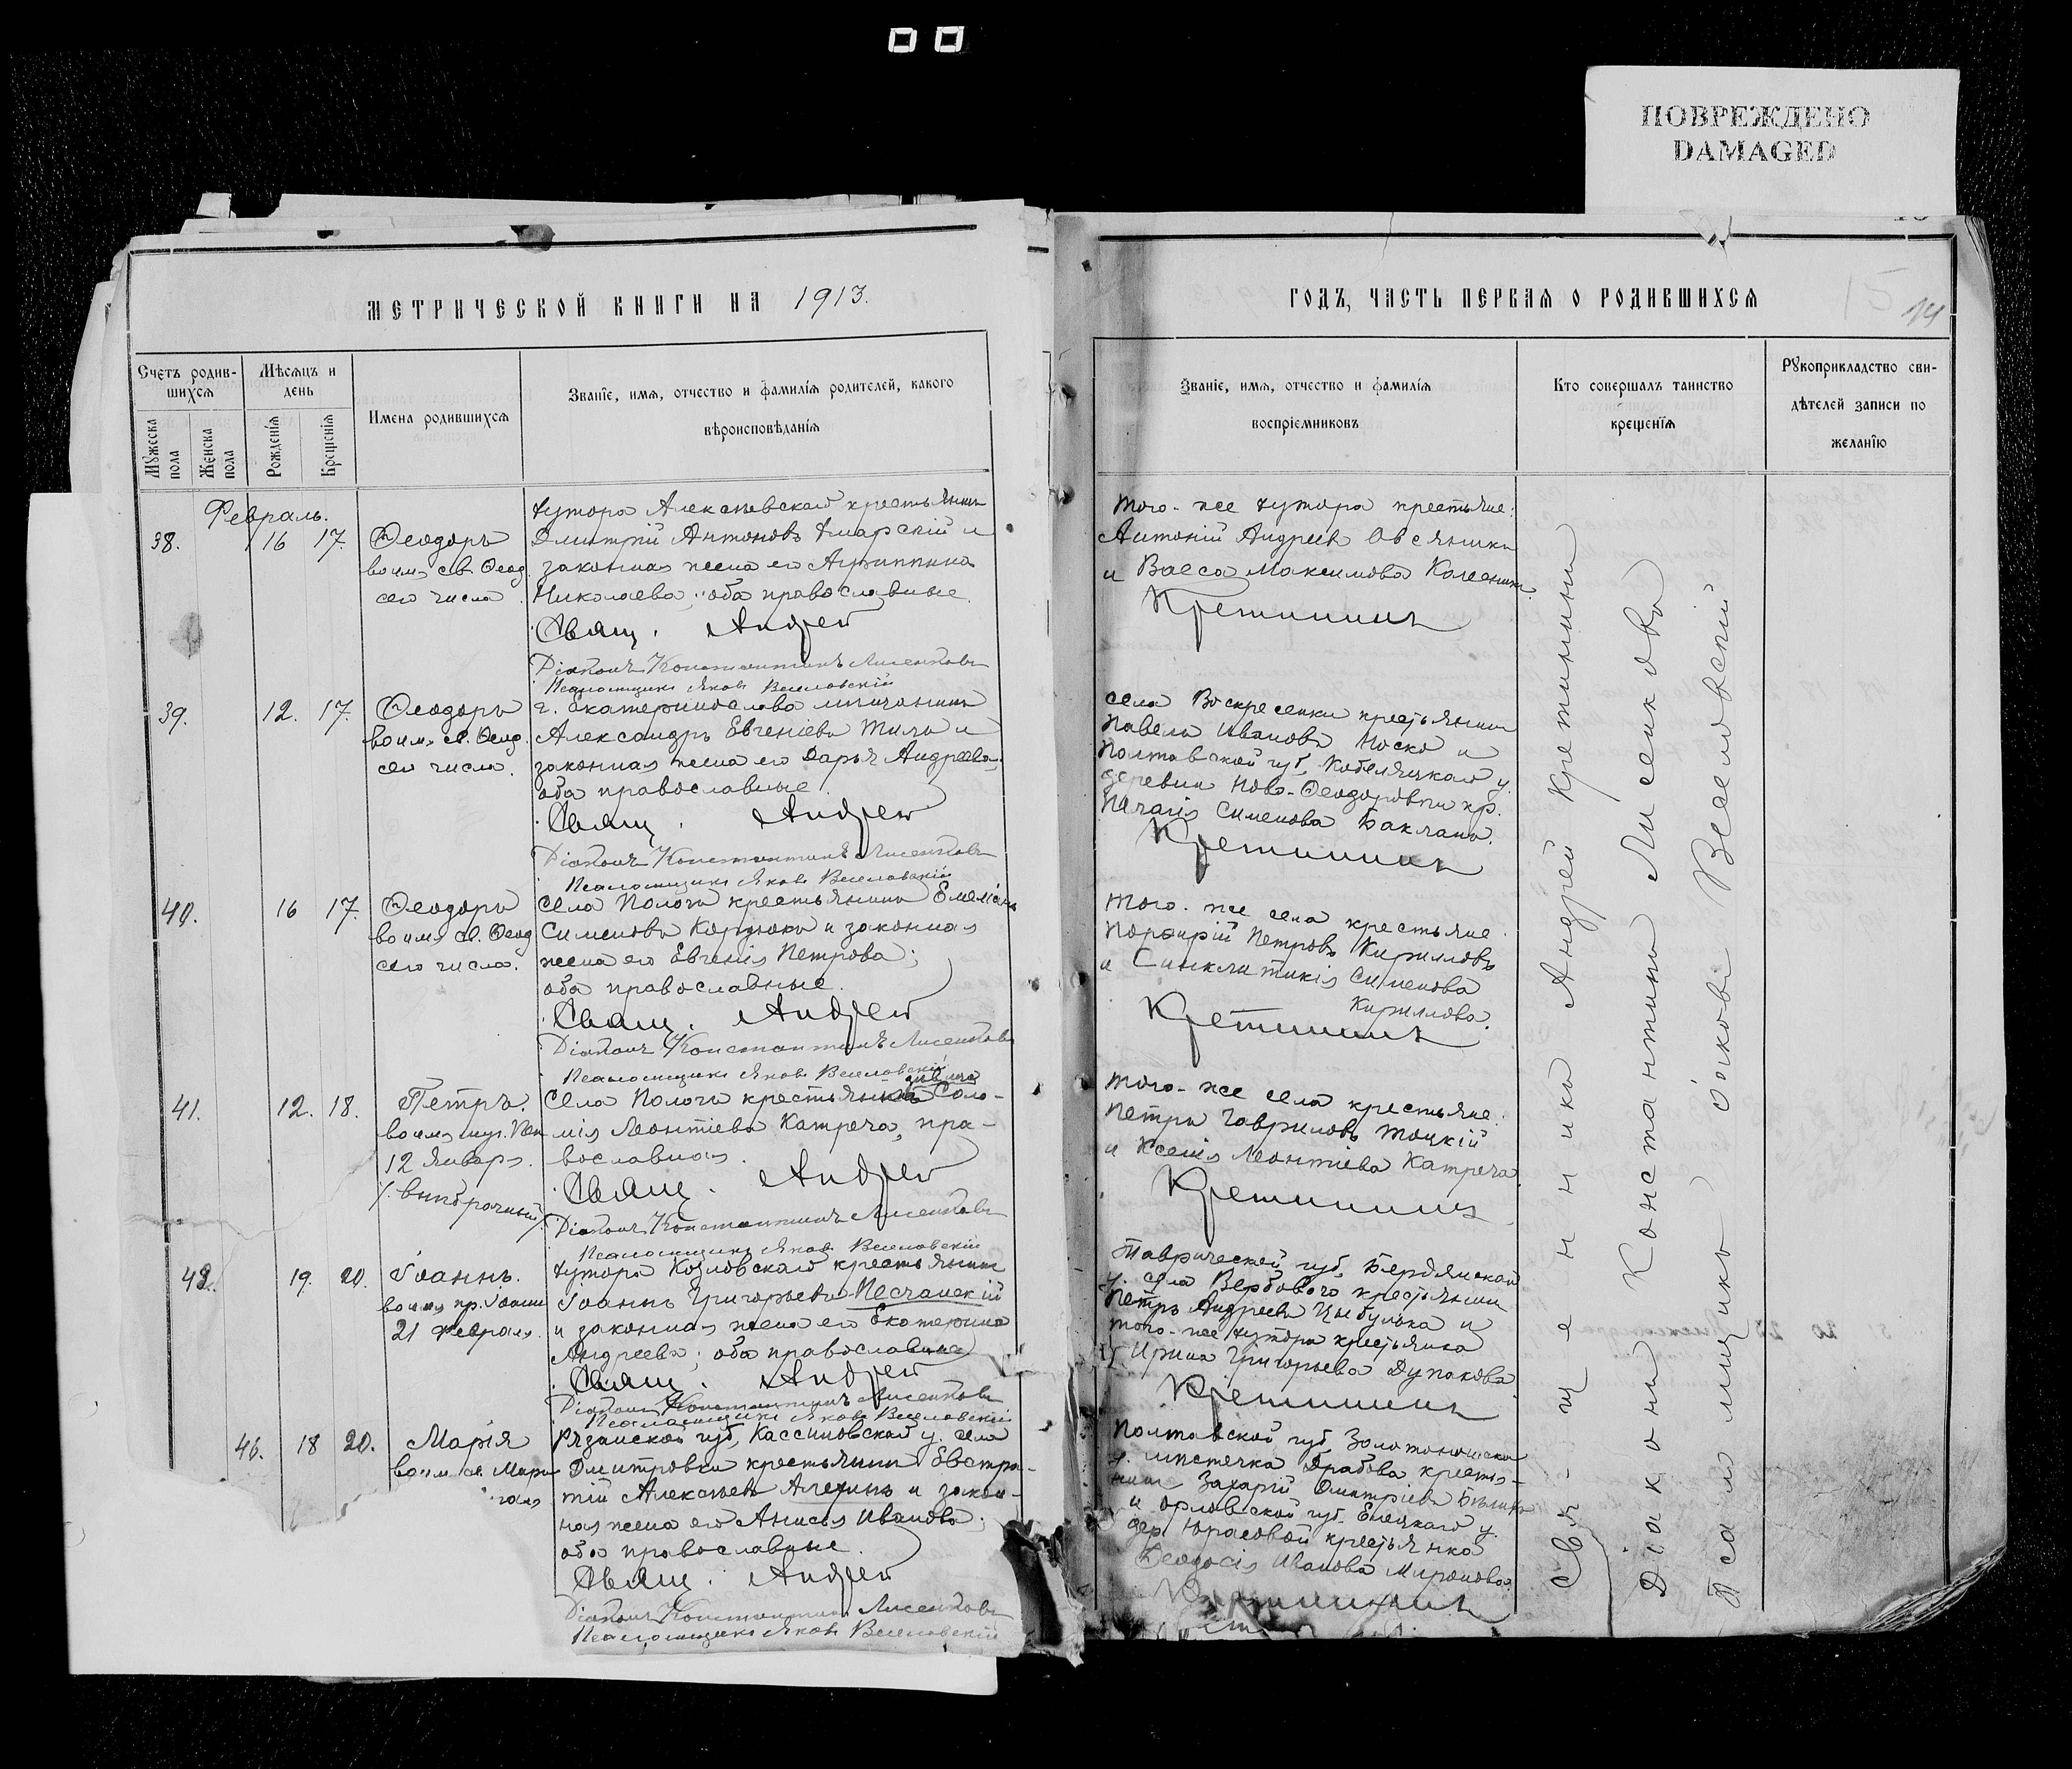 ПОВРЕЖДЕНО
DAMAGED
МЕТРИЧЕСКОЙ КНИГИ НА 1913.
Счетъ родив-
шихся
Мѣсяцъ и
день
Имена родившихся
Званіе, имя, отчество и фамилія родителей, какого
вѣроисповѣданія
Мужеска
пола
Женска
пола
Рожденія
Крещенія
Февраль.
38. 16 17. Ѳеодоръ
во имя св. Ѳеод.
сего числа.
хутора Алексѣевскаго крестьянинъ
Дмитрій Антоновъ и
законная жена его Агриппина
Николаева; оба православные.
Свящ. Андрей
Діаконъ Константинъ Лисенковъ
Псаломщикъ Яковъ Веселовскій
39. 12. 17. Ѳеодоръ
во имя св. Ѳеод.
сего числа.
г. Екатеринослава мѣщанинъ
Александръ Евгеніевъ и
законная жена его Дарья Андреева;
оба православные.
Свящ. Андрей
Діаконъ Константинъ Лисенковъ
Псаломщикъ Яковъ Веселовскій
40. 16 17. Ѳеодоръ
во имя св. Ѳеод
сего числа.
Села Пологъ крестьянинъ Емеліанъ
Сименовъ и законная
жена его Евгенія Петрова;
оба православные.
Свящ. Андрей
Діаконъ Константинъ Лисенковъ
Псаломщикъ Яковъ Веселовскій
41. 12. 18. Петръ.
12 Января.
/внѣбрачный/
Села Пологъ дѣвица Соло-
мія Леонтіева Катреча, пра-
вославная.
Свящ. Андрей
Діаконъ Константинъ Лисенковъ
Псаломщикъ Яковъ Веселовскій
42. 19. 20. Іоаннъ.
во имя пр. Іоанн
21 Февраля.
хутора Козловскаго крестьянинъ
Іоаннъ Григорьевъ Песчанскій
и законная жена его Екатерина
Андреева; оба православные
Свящ. Андрей
Діаконъ Константинъ Лисенковъ
Псаломщикъ Яковъ Веселовскій
46. 18 20. Марія
во имя св. Маріи
Рязанской губ, Кассимовскаго у. села
Дмитровки крестьянинъ Евстра-
тій Алексѣевъ Алехинъ и закон-
ная жена его Анисія Иванова;
оба православные.
Свящ. Андрей
Діаконъ Константинъ Лисенковъ
Псаломщикъ Яковъ Веселовскій
ГОДЪ, ЧАСТЬ ПЕРВАЯ О РОДИВШИХСЯ
15
14
Званіе, имя, отчество и фамилія
воспріемниковъ
Кто совершалъ таинство
крещенія
Рукоприкладство сви-
дѣтелей записи по
желанію
того-же хутора крестьяне:
Антоній Андреевъ Овсянникъ
и Васса Максимова
Кретининъ
села Воскресенки крестьянинъ
Павелъ Ивановъ Носко и
Полтавской губ, Кобелякскаго у.
деревни Ново-Ѳеодоровки кр.
Пелагія Сименова Баклана.
Кретининъ
того-же села крестьяне
Порфирій Петровъ Кирилловъ
и Синклитикія Сименова
Кириллова.
Кретининъ
того-же села крестьяне:
Петръ Гавриловъ Тоцкій
и Ксенія Леонтіева Катреча.
Кретининъ
Таврической губ, Бердянскаго
у. села Вербоваго крестьянинъ
Петръ Андреевъ Цыбулька и
того-же хутора крестьянка
Ирина Григорьева
Кретининъ
Полтавской губ, Золотоношскаго
у. мѣстечка Драбова крестья-
нинъ Захарій Дмитріевъ
и Орловской губ. Елецкаго у.
дер. Юрасовой крестьянка
Ѳеодосія Иванова Миронова.
Кретининъ
Священникъ Андрей Кретининъ
Діаконъ Константинъ Лисенковъ
Псаломщикъ Іаковъ Веселовскій